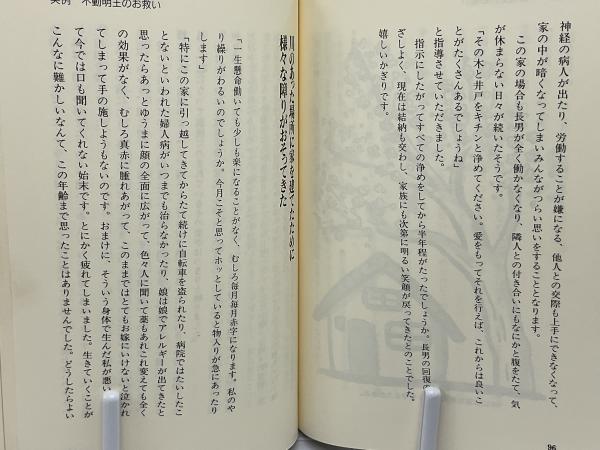 神経の病人が出たり、労働することが嫌になる、他人との交際も上手にできなくなって、
家の中が暗くなってしまいみんながつらい思いをすることとなります。
この家の場合も長男が全く働かなくなり、隣人との付き合いにもなにかと腹をたて、気
が休まらない日々が続いたそうです。
「その木と井戸をキチンと浄めてください。愛をもってそれを行えば、これからは良いこ
とがたくさんあるでしょうね」
と指導させていただきました。
指示にしたがってすべての浄めをしてから半年程がたったでしょうか。長男の回復の
ざしよく、現在は結納も交わし、家族にも次第に明るい笑顔が戻ってきたとのことでした。
嬉しいかぎりです。
96
実例 不動明王のお救い
川のあった場所に家を建てたために
様々な障りがおそってきた
「一生懸命働いても少しも楽になることがなく、むしろ毎月毎月赤字になります。私のや
り繰りがわるいのでしょうか。今月こそと思ってホッとしていると物入りが急にあったり
します」
「特にこの家に引っ越してきてからたて続けに自転車を盗られたり、病院ではたいしたこ
とないといわれた婦人病がいつまでも治らなかったり、娘は娘でアレルギーが出てきたと
思ったらあっとゆうまに顔の全面に広がって、色々人に聞いて薬もあれこれ変えても全く
の効果がなく、むしろ真赤に腫れあがって、このままではとてもお嫁にいけないと泣かれ
てしまって手の施しようもないのです。おまけに、そういう身体で生んだ私が悪い
て今では口も聞いてくれない始末です。とにかく疲れてしまいました。生きていくことが
こんなに難かしいなんて、この年齢まで思ったことはありませんでした。どうしたらよい